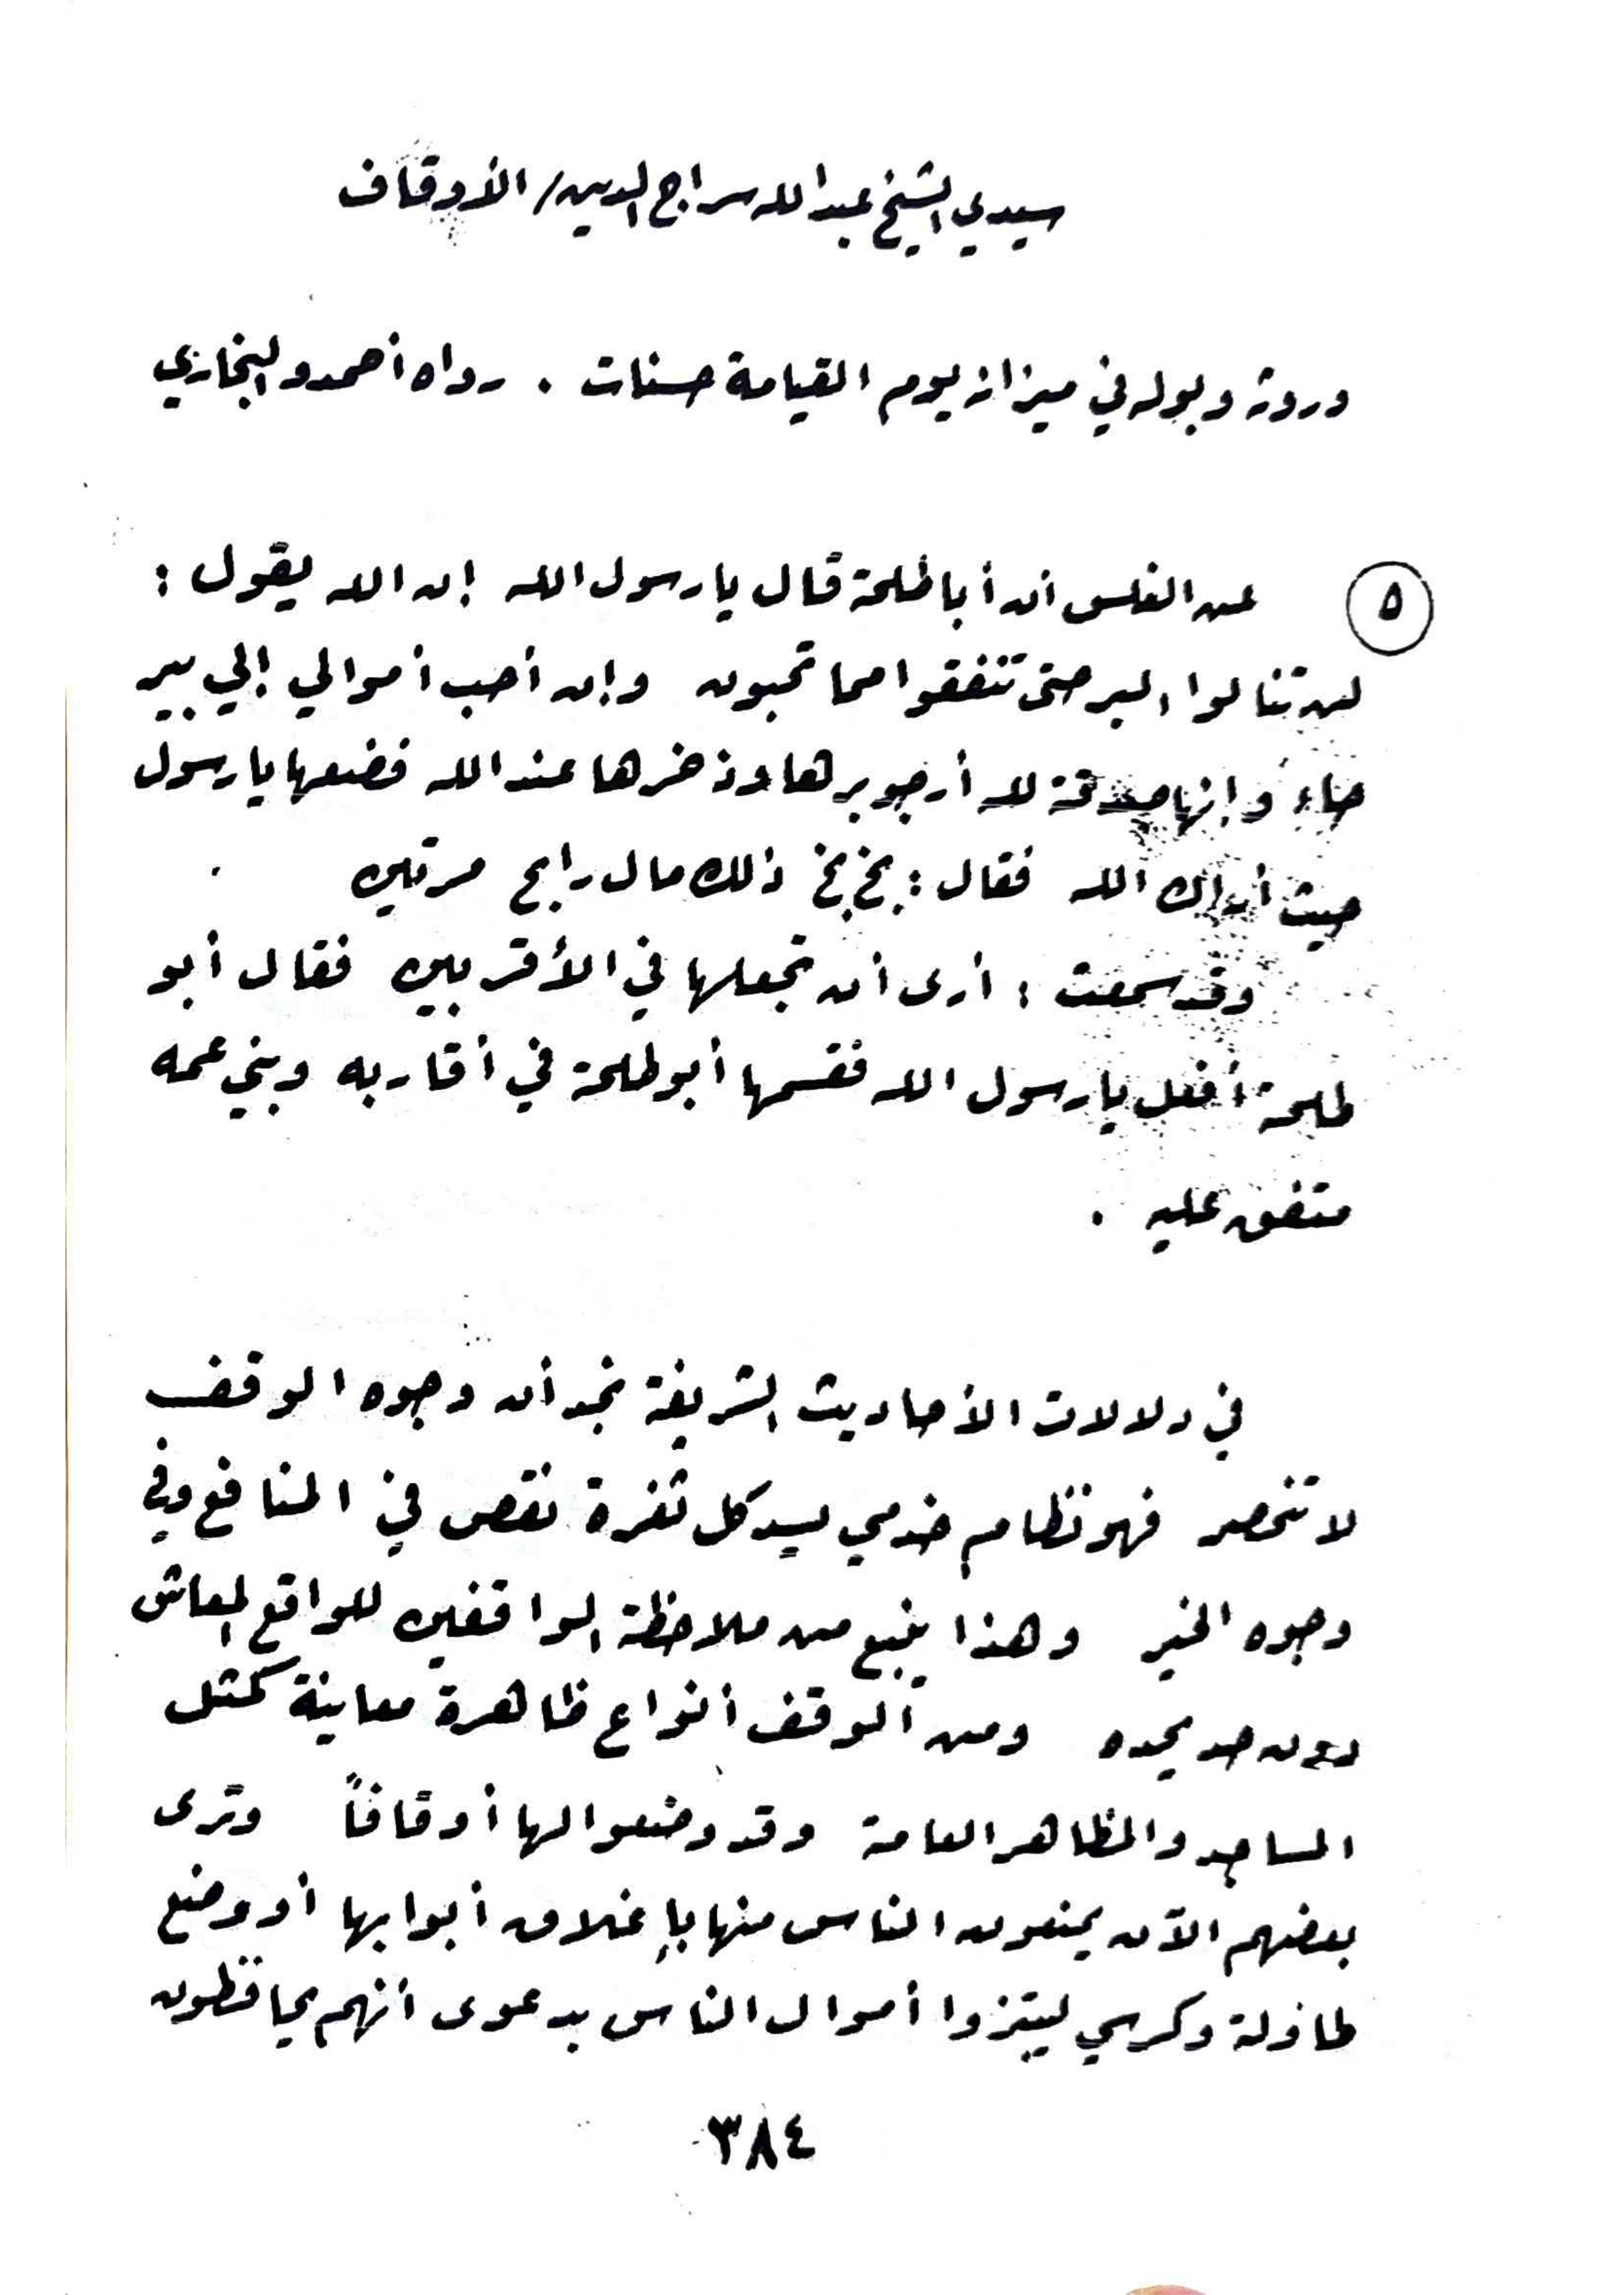 سيدي الشيخ عبد الله سراج الدين / الأوقاف
وروثه وبوله في ميزانه يوم القيامة حسنات . رواه أحمد والبخاري
٥ عن أنس أن أبا طلحة قال يا رسول الله إن الله يقول :
لن تنالوا البر حتى تنفقوا مما تحبون وإن أحب أموالي إلي بير
حاء وإنها صدقة لله أرجو برها وذخرها عند الله فضعها يا رسول
حيث أراك الله فقال : بخ بخ ذلك مال رابح مرتين
وقد سمعت : أرى أن تجعلها في الأقربين فقال أبو
طلحة أفعل يا رسول الله فقسمها أبو طلحة في أقاربه وبني عمه
متفق عليه .
في دلالات الأحاديث الشريفة نجد أن وجوه الوقف
لا تنحصر فهو نظام خدمي يسد كل ثغرة نقص في المنافع وفي
وجوه الخير وهذا ينبع من ملاحظة الواقفين للواقع المعاش
دون حد يحده ومن الوقف أنواع ظاهرة معاينة كمثل
المساجد والمظاهر العامة وقد وضعوا لها أوقافاً وترى
بعضهم الآن يمنعون الناس منها بإغلاق أبوابها أو وضع
طاولة وكرسي ليبتزوا أموال الناس بدعوى أنهم يحافظون
٣٨٤